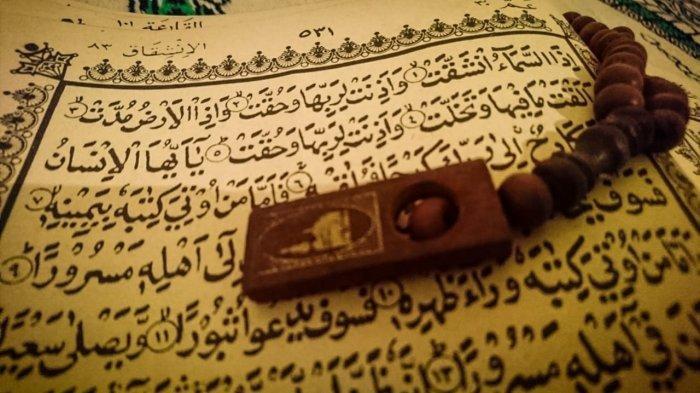 ٥٣١
الْاِنْشِقَاق ٨٣
اِذَا السَّمَآءُ انْشَقَّتْ ۝١ وَاَذِنَتْ لِرَبِّهَا وَحُقَّتْ ۝٢ وَاِذَا الْاَرْضُ مُدَّتْ ۝٣
لْقَتْ مَا فِيْهَا وَتَخَلَّتْ ۝٤ وَاَذِنَتْ لِرَبِّهَا وَحُقَّتْ ۝٥ يٰٓاَيُّهَا الْاِنْسَانُ
كَادِحٌ اِلٰى رَبِّكَ ۝٦ فَاَمَّا مَنْ اُوْتِيَ كِتٰبَهٗ بِيَمِيْنِهٖ ۝٧
فَسَوْفَ اِلٰٓى اَهْلِهٖ مَسْرُوْرًا ۝٩
مَنْ اُوْتِيَ كِتٰبَهٗ وَرَآءَ ظَهْرِهٖ ۝١٠ فَسَوْفَ يَدْعُوْا ثُبُوْرًا ۝١١ وَيَصْلٰى
فِيْٓ اَهْلِهٖ مَسْرُوْرًا ۝١٣